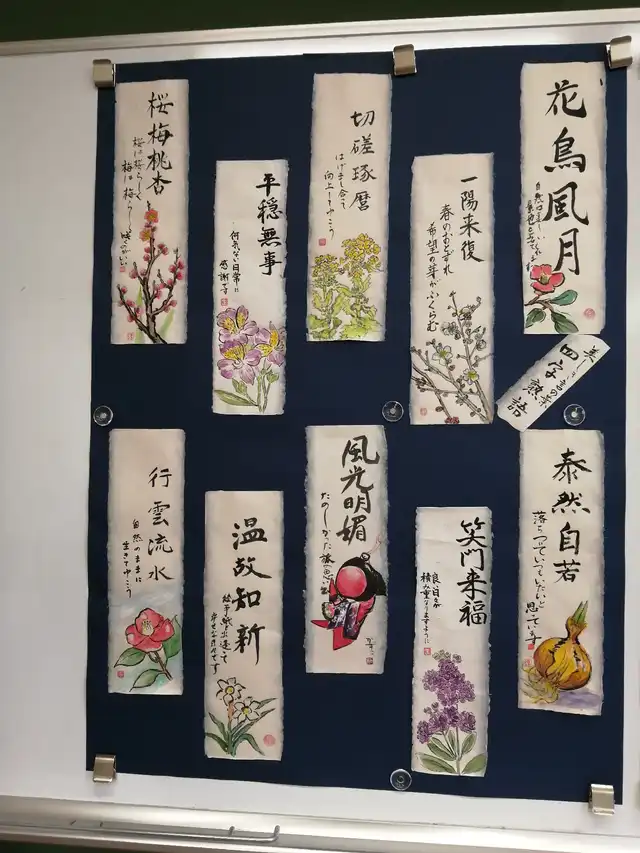 花鳥風月
四字熟語
一陽来復
春のおとずれ
希望の芽がふくらむ
切磋琢磨
はげまし合って
向上してゆこう
平穏無事
何気ない日常に
感謝です
桜梅桃杏
桜は桜らしく
梅は梅らしく
泰然自若
思っています
笑門来福
良い日々が
積み重なりますように
風光明媚
たのしかった旅の思い出
温故知新
行雲流水
自然のままに
生きてゆこう